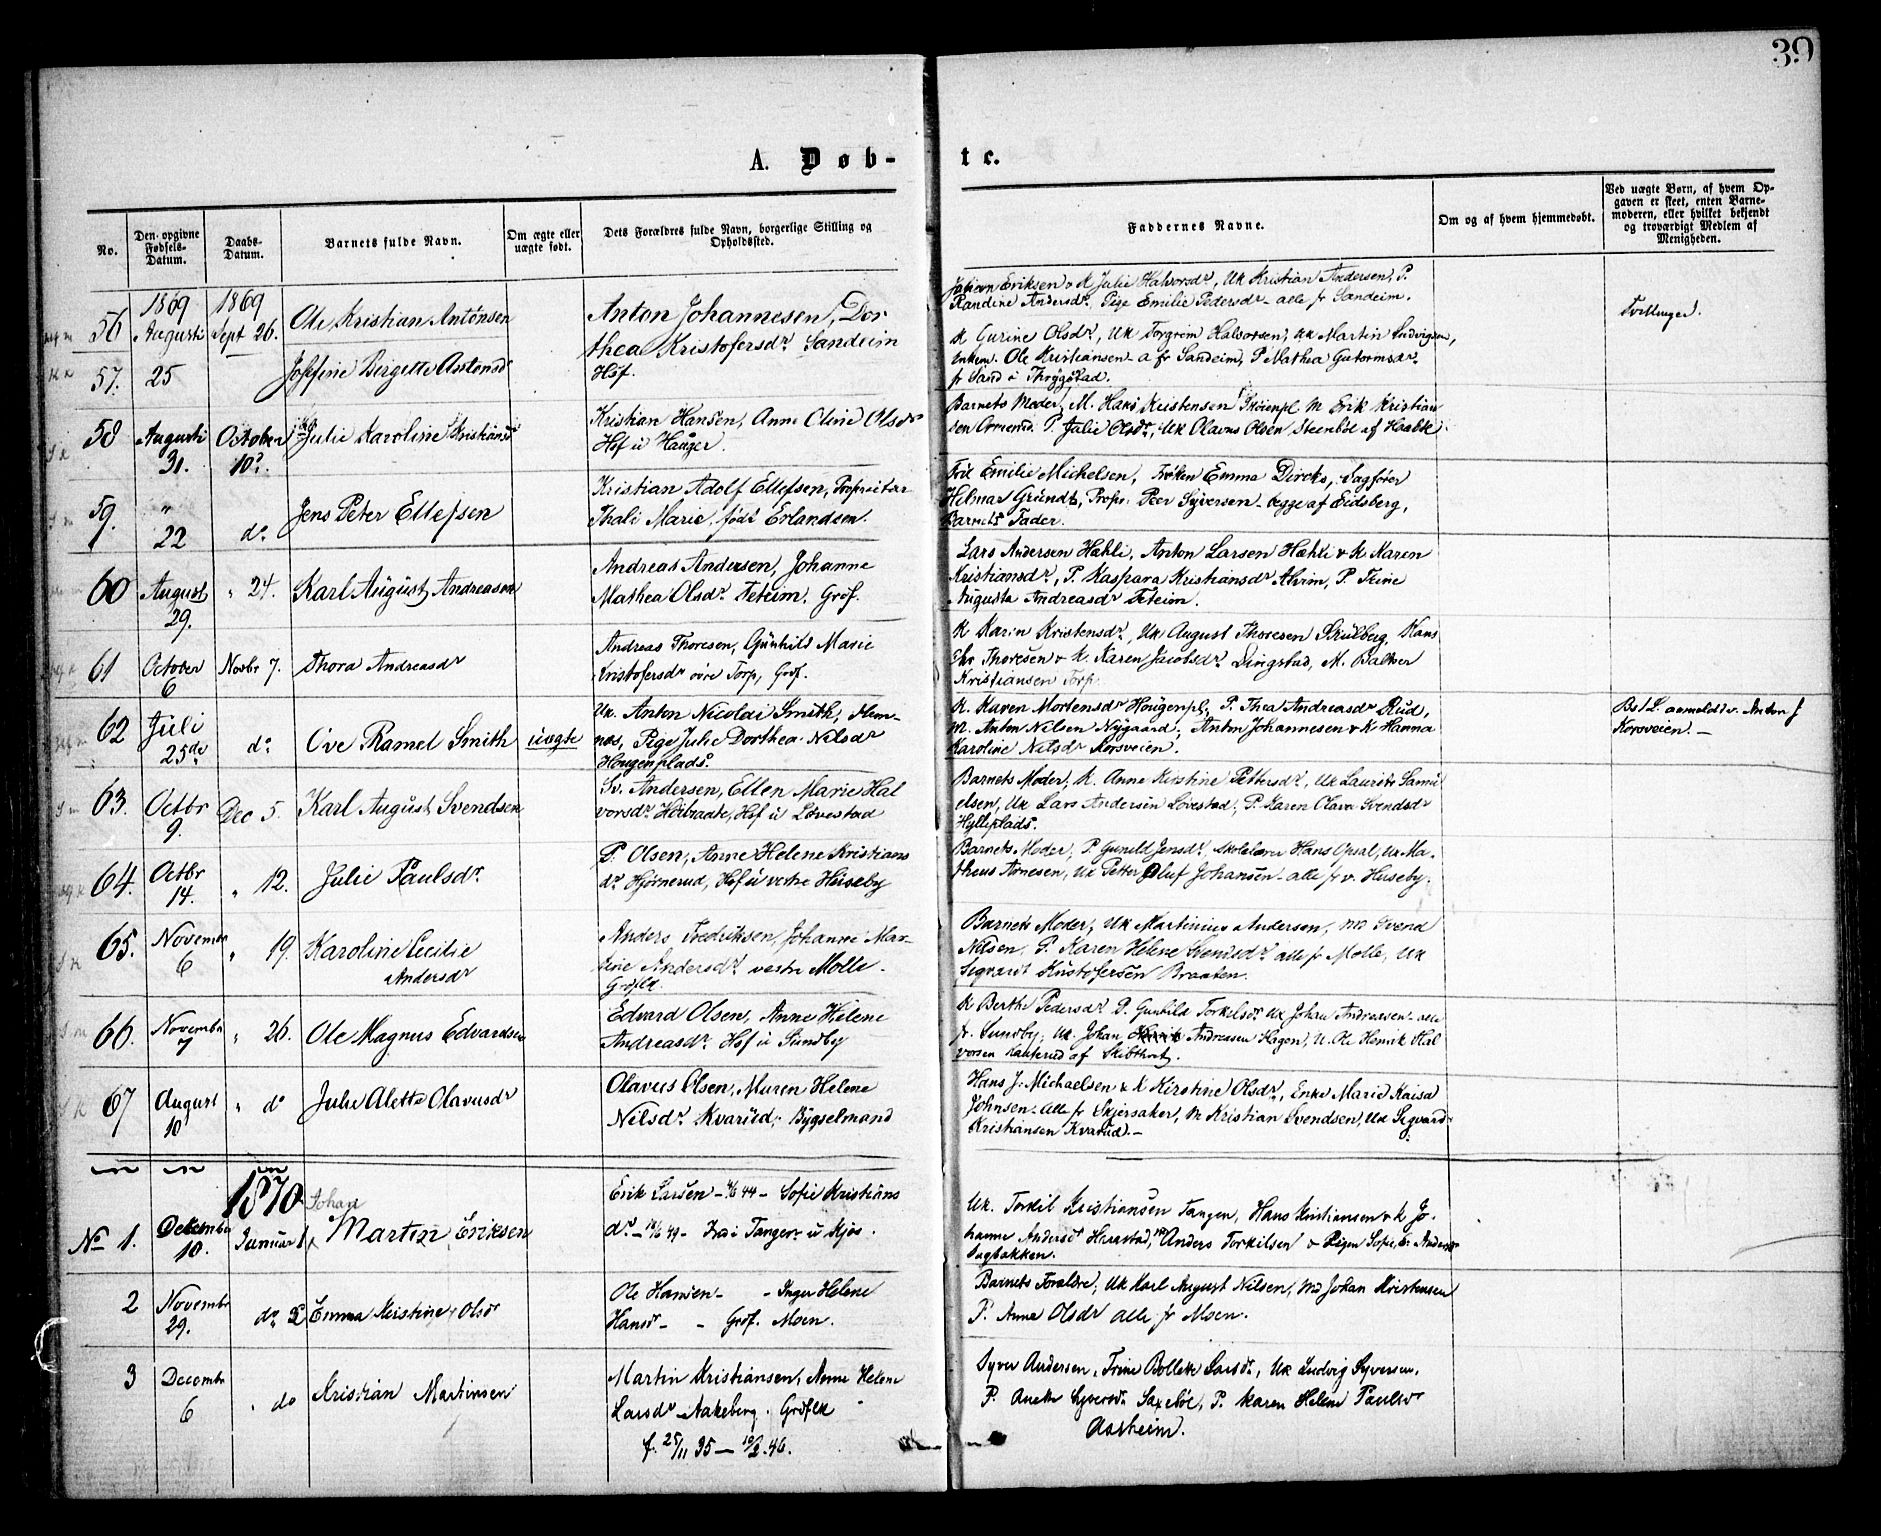 39
A. Døb-
te.
No.
Den opgivne
Fødsels-
Datum.
Daabs-
Datum.
Barnets fulde Navn.
Om ægte eller
uægte født.
Dets Forældres fulde Navn, borgerlige Stilling og
Opholdssted.
Faddernes Navne.
Om og af hvem hjemmedøbt.
Ved uægte Børn, af hvem Op-
gaven er skeet, enten Barne-
moderen, eller hvilket bekjendt
og troværdigt Medlem af
Menigheden.
1869
1869
56
Augusti
Sept 26.
Ole Kristian Antonsen
Anton Johannesen, Dor
Eriksen & K Julie Halvorsdr, Uk Kristian Andersen, P.
Randine Andersdr, Pige Emilie Pedersdr - alle fr Sandeim.
Tvillinger.
57.
25
Birgette Antonsd
thea Kristofersdr Sandeim
Hsf.
K Gurine Olsdr, Uk Torgrim Halvorsen, Uk Martin Ludvigsen,
Enkem. Ole Kristiansen - a fr Sandeim, P Mathea Gutormsdr
fr Sand i Thrygstad.
58
Augusti
31.
October
10de
Julie Karoline Kristiansd
Kristian Hansen, Anne Oline Olsdr
Hsf u Hauger.
Barnets Moder, M. Hans Kristensen Støienpl. M Erik Kristian
sen P. Julie Olsdr, Uk Olavus Olsen Steenbøl af Haabøl.
59.
"
22
do
Jens Peter Ellefsen
Kristian Adolf Ellefsen, Proprietær
Thali Marie, født Erlandsen.
Emilie Michelsen, Frøken Emma Dircks, Sagfører
Helmar Grundt, Propr. Peer Syversen - begge af Eidsberg,
Barnets Fader.
60
August
29.
" 24.
Karl August Andreasen
Andreas Andersen, Johanne
Mathea Olsdr. Feteim. Grdf.
Lars Andersen Hæhli, Anton Larsen Hæhli & K Karen
Kristiansdr, P. Kaspara Kristiansdr Alvim, P. Trine
Augusta Andreasdr Feteim.
61
October
6
Novbr 7.
Thora Andreasdr
Andreas Thoresen, Gunhild Marie
Kristofersdr øvre Torp, Grdf.
K Karin Kristensdr, Uk August Thoresen Skulberg, Hans
Chr Thoresen & K. Karen Jacobsdr Lingstad, M. Baltser
Kristiansen Torp.
62
Juli
25de
do
Ove Ramel Smith
uægte
Uk. Anton Nicolai Smith, Hem-
næs, Pige Julie Dorthea Nilsdr
Haugenplads.
K. Karen Mortensdr Haugenpl, P. Thea Andreasdr Rud,
M. Anton Nilsen Nygaard, Anton Johannesen & K Hanna
Karoline Nilsdr Korsveien.
anmeldt v. Anton J
Korsveien. -
63.
Octbr
9.
Dec 5.
Karl August Svendsen
Sv. Andersen, Ellen Marie Hal
vorsdr Hsf u Løvestad
Barnets Moder, K. Anne Kirstine Pettersdr, Uk Laurits Samu
elsen, Uk Lars Andersen Løvestad, P. Karen Olava Svendsdr
Hylleplads.
64.
Octbr
14.
" 12.
Julie Paulsdr.
P. Olsen, Anne Helene Kristians
dr Hjørnerud, Hsf u vestre Huseby
Barnets Moder, P. Gunild Jensdr, Skolelærer Hans Opsal, Uk Ma-
theus Arnesen, Uk Petter Oluf Johansen - alle fr v. Huseby.
65.
Novembr
6
" 19.
Karoline Cecilie
Andersdr
Anders Fredriksen, Johanne Mar-
tine Andersdr vestre Molle.
Barnets Moder, Uk Martinius Andersen, M Svend
Nilsen, P. Karen Helene Svendsdr alle fr Molle, Uk
Segvardt Kristofersen Braaten.
66.
Novembr
7
" 26.
Ole Magnus Edvardsen
Edvard Olsen, Anne Helene
Andreasdr. Hsf u Sundby
K Berthe Pedersdr P. Gunhild Torkilsdr Uk Johan Andreasen alle
fr. Sundby, Uk. Johan Andreasen Hagen, U. Ole Henrik Hal
vorsen af Skibthvet.
67
August
10
" do
Julie Alette Olavusdr
Olavus Olsen, Maren Helene
Nilsdr. Kvarud, Bygselmand
Hans J. Michaelsen & K Kirstine Olsdr, Enke Marie Kaisa
Johnsen - alle fr Skjersaker, M Kristian Svendsen, Uk Segvard
Kristiansen Kvarud. -
1870
No 1.
December
10.
Januar 1
Johan
Martin Eriksen
Erik Larsen - 44 - Sofie Kristians
dr - 49 - Tangen u Mjos.
Uk. Torkil Kristiansen Tangen, Hans Kristiansen & K Jo-
hanne Andersdr Anders Torkilsen & Pigen Sofie
2
Novembr
29.
do
Emma Kirstine Olsdr
Ole Hansen - - Inger Helene
Hansdr - - Grdf. Moen.
Barnets Forældre, Uk Karl August Nilsen, M Johan Kristensen
P. Anne Olsdr alle fr Moen.
3
Decembr
6
" do
Kristian Martinsen
Martin Kristiansen, Anne Helene
Larsdr Aakeberg. Grdflk
f. 25/11 35 - 10/2. 46.
Syver Andersen, Trine Bollette Larsdr, Uk Ludvig Syversen,
P. Anette Syversdr Saxebøl, P. Karen Helene Paulsdr
Aasheim.